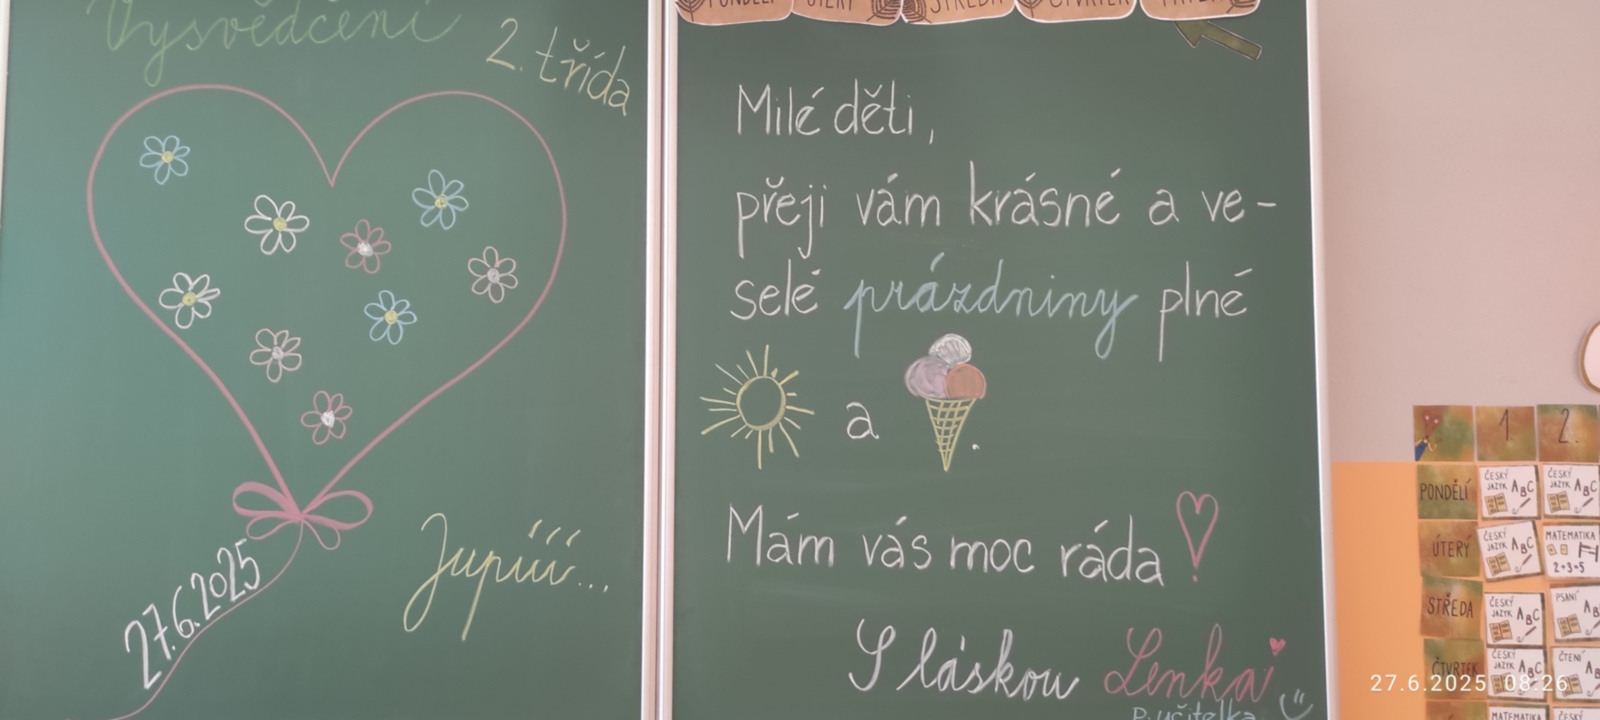 Vysvědčení
2. třída
27.6.2025
Jupííí...
PONDĚLÍ ÚTERÝ STŘEDA ČTVRTEK
Milé děti,
přeji vám krásné a ve-
selé prázdniny plné
a .
Mám vás moc ráda
S láskou Lenka
p. učitelka
1. 2.
PONDĚLÍ ČESKÝ JAZYK ABC ČESKÝ JAZYK ABC
ÚTERÝ ČESKÝ JAZYK ABC MATEMATIKA 2+3=5
STŘEDA ČESKÝ JAZYK ABC PSANÍ
ČTVRTEK ČESKÝ JAZYK ABC ČTENÍ
MATEMATIKA ČESKÝ
27.6.2025 08:26